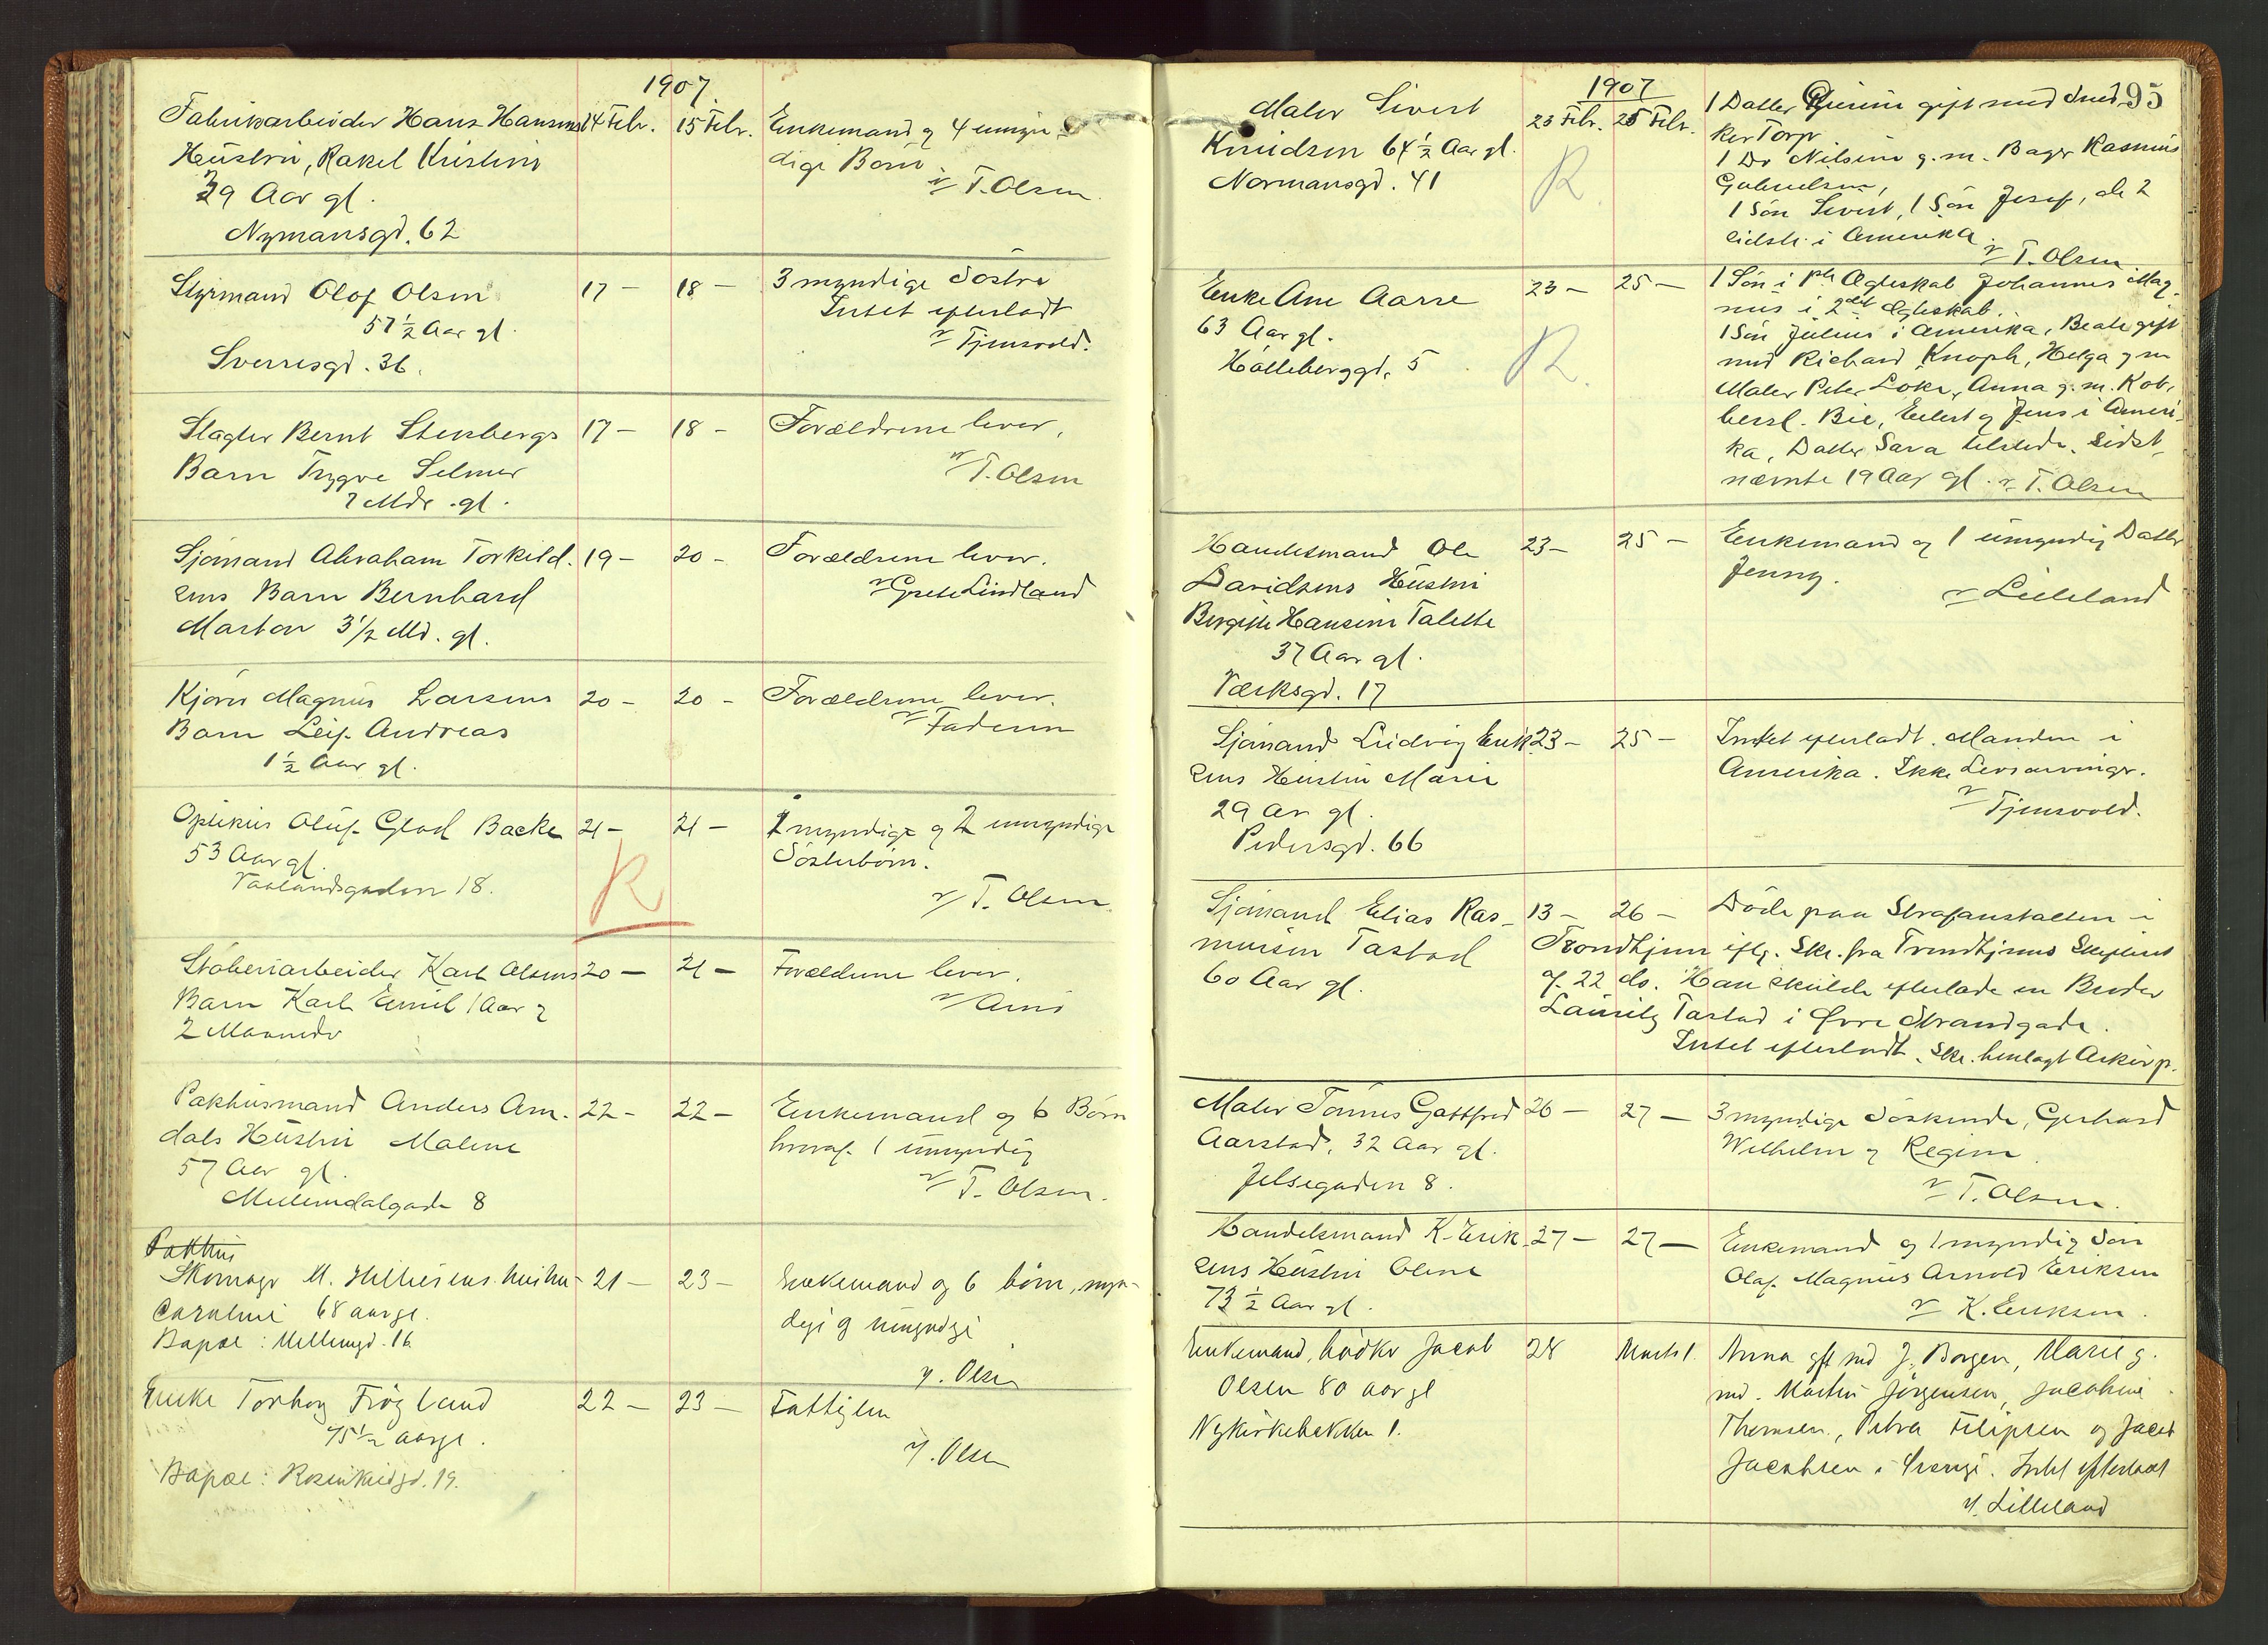 1907.
Fabrikarbeider Hans Hansens 14 Febr. 15 Febr. Enkemand og 4 umyn-
Hustru, Rakel Kristine dige Børn
39 Aar gl. v/ T. Olsen
Nymansgd. 62
Styrmand Olof Olsen 17 – 18 – 3 myndige Søstre
57 1/2 Aar gl. Intet efterladt
Sverresgd. 36. v/ Tjensvold.
Slagter Bernt Stensbergs 17 – 18 – Forældrene lever.
Barn Trygve Selmer v/ T. Olsen
7 Mdr. gl.
Sjømand Abraham Torkild- 19 – 20 – Forældrene lever.
sens Barn Bernhard v/ Grete Lindland
Marton 3 1/2 Md. gl.
Kjører Magnus Larsens 20 – 20 – Forældrene lever.
Barn Leif Andreas v/ Faderen
1 1/2 Aar gl.
Optikus Oluf Glad Backe 21 – 21 – myndige og 2 umyndige
53 Aar gl. Søsterbørn.
Vaalandsgaden 18. R v/ T. Olsen
Støberiarbeider Karl Olsens 20 – 21 – Forældrene lever.
Barn Karl Emil 1 Aar og v/
2 Maaneder
Pakhusmand Anders Am- 22 – 22 – Enkemand og 6 Børn
dals Hustru Malene hvoraf 1 umyndig
57 Aar gl. v/ T. Olsen.
Mellemdalgade 8
Pakhus
Skomager M. hustru 21 – 23 – Enkemand og 6 børn, myn-
Caroline 68 aar gl. dige og umyndige
Bopæl: Møllegd. 16 v/ Olsen
Enke Torborg Frøyland 22 – 23 – Fattiglem
75 1/2 aar gl. v/ Olsen
Bopæl: Rosenkildgd. 19.
95
1907
Maler Sivert 23 Febr. 25 Febr. 1 Datter gift med Sned-
Knudsen 64 1/2 Aar gl. ker Torp
Normansgd. 41 R 1 Dr Nilsine g. m. Bager Rasmus
Gabrielsen,
1 Søn Sivert, 1 Søn Josef, de 2
sidste i Amerika.
v/ T. Olsen
Enke Ane Aarre 23 – 25 – 1 Søn i 1ste Ægteskab Johannes Mag-
63 Aar gl. nus i 2det Ægteskab.
Hølleberggd. 5 R. 1 Søn Julius i Amerika, Beate gift
med Richard Knoph, Helga g m
Maler Peter Løke, Anna g. m. Kob-
bersl. Bie, Eilert og Jens i Ameri-
ka, Datter Sara tilstede. Sidst-
nævnte 19 Aar gl. v/ T. Olsen
Handelsmand Ole 23 – 25 – Enkemand og 1 umyndig Datter
Davidsens Hustru Jenny.
Bergitte Hansine Talette v/ Lilleland
37 Aar gl.
Værksgd. 17
Sjømand Ludvig Erik- 23 – 25 – Intet efterladt. Manden i
sens Hustru Marie Amerika. Ikke Livsarvinger.
29 Aar gl. v/ Tjensvold.
Pedersgd. 66
Sjømand Elias Ras- 13 – 26 – Døde paa Strafanstalten i
mussen Tastad Trondhjem iflg. Skr. fra Trondhjems Skifteret
60 Aar gl. af 22 ds. Han skulde efterlade en Broder
Lauritz Tastad i Øvre Strandgade.
Intet efterladt. Skr. henlagt Arkiv p.
Maler Tønnes Gottfred 26 – 27 – 3 myndige Søskende, Gerhard
Aarstad, 32 Aar gl. Wilhelm og Regine
Jelsegaden 8. v/ T. Olsen.
Handelsmand K. Erik- 27 – 27 – Enkemand og 1 myndig Søn
sens Hustru Oline Olaf Magnus Arnold Eriksen
73 1/2 Aar gl. v/ K. Eriksen.
Enkemand, bødker Jacob 28 Marts 1. Anna gift med J. Borgen, Marie g.
Olsen 80 aar gl med. Martin Jørgensen, Jacobine
Nykirkebakken 1. Thomsen, Petra Filipsen og Jacob
Jacobsen i Sverige. Intet efterladt
v/ Lilleland